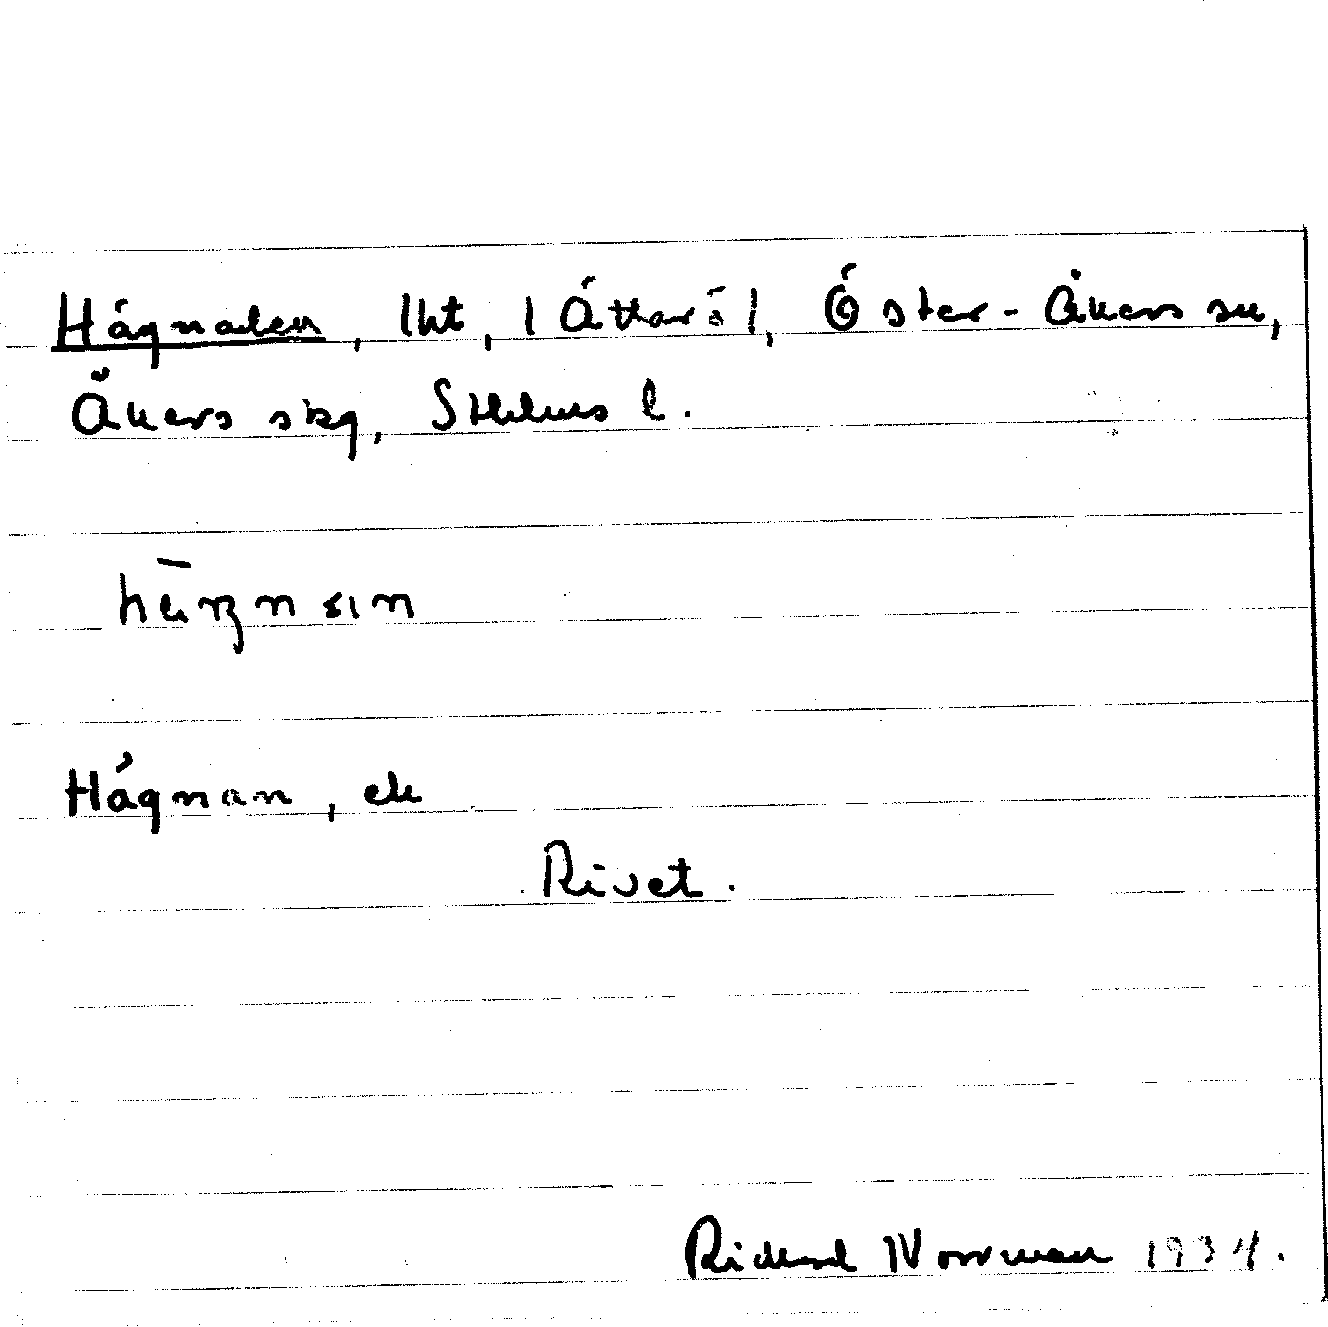 Hågnaden, lht, | Åttarö |, Öster-Åkers sn,
Åkers skg, Sthlms l.
Hågnan, ek
Rivet.
Richard Norrman 1934.